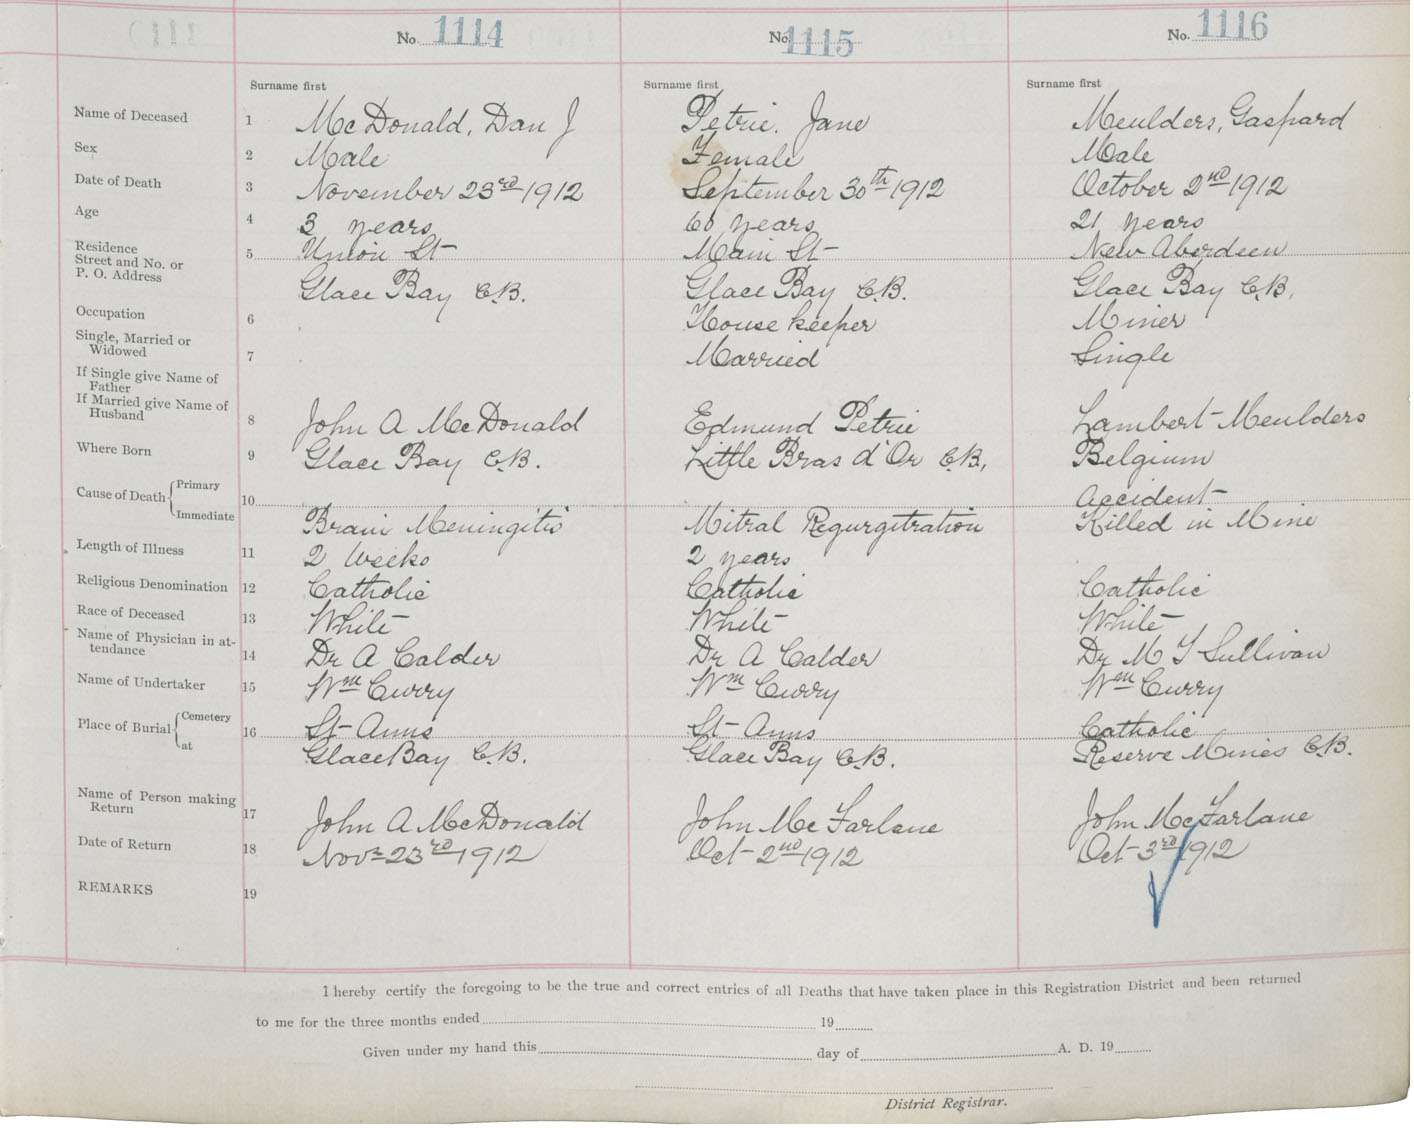 No. 1114 No. 1115 No. 1116
Surname first Surname first Surname first
Name of Deceased 1 McDonald, Dan J Petrie. Jane Meulders, Gaspard
Sex 2 Male Female Male
Date of Death 3 November 23rd 1912 September 30th 1912 October 2nd 1912
Age 4 3 years 60 years 21 years
Residence
Street and No. or 5 Union St Main St New Aberdeen
P. O. Address
Glace Bay C.B. Glace Bay C.B. Glace Bay C.B.
Occupation 6 House keeper Miner
Single, Married or
Widowed 7 Married Single
If Single give Name of
Father
If Married give Name of
Husband 8 John A McDonald Edmund Petrie Lambert Meulders
Where Born 9 Glace Bay C.B. Little Bras d'Or C.B. Belgium
Primary
Cause of Death 10 Accident
Immediate Brain Meningitis Mitral Regurgitration Killed in Mine
Length of Illness 11 2 Weeks 2 years
Religious Denomination 12 Catholic Catholic Catholic
Race of Deceased 13 White White White
Name of Physician in at-
tendance 14 Dr A Calder Dr A Calder Dr M T Sullivan
Name of Undertaker 15 Wm Curry Wm Curry Wm Curry
Cemetery
Place of Burial 16 St Anns St Anns Catholic
at Glace Bay C.B. Glace Bay C.B. Reserve Mines C.B.
Name of Person making
Return 17 John A McDonald John McFarlane John McFarlane
Date of Return 18 Nov 23rd 1912 Oct 2nd 1912 Oct 3rd 1912
REMARKS 19
I hereby certify the foregoing to be the true and correct entries of all Deaths that have taken place in this Registration District and been returned
to me for the three months ended 19
Given under my hand this day of A. D. 19
District Registrar.